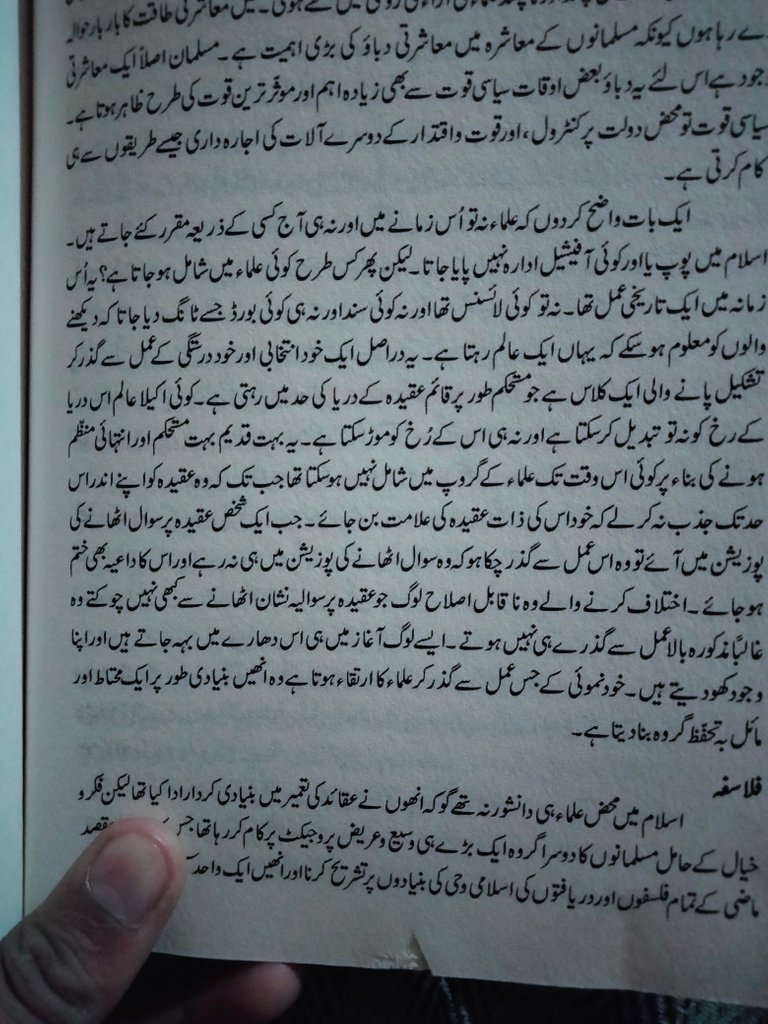 رہا ہوں کیونکہ مسلمانوں کے معاشرہ میں معاشرتی دباؤ کی بڑی اہمیت ہے۔ میں معاشرتی طاقت کا بار بار حوالہ
وجود ہے اس لئے یہ دباؤ بعض اوقات سیاسی قوت سے بھی زیادہ اہم اور موثر ترین قوت کی طرح ظاہر ہوتا ہے۔ مسلمان اصلاً ایک معاشرتی
سیاسی قوت تو محض دولت پر کنٹرول، اور قوت و اقتدار کے دوسرے آلات کی اجارہ داری جیسے طریقوں سے ہی
کام کرتی ہے۔
ایک بات واضح کردوں کہ علماء نہ تو اُس زمانے میں اور نہ ہی آج کسی کے ذریعہ مقرر کئے جاتے ہیں۔
اسلام میں پوپ یا اور کوئی آفیشیل ادارہ نہیں پایا جاتا۔ لیکن پھر کس طرح کوئی علماء میں شامل ہو جاتا ہے؟ یہ اُس
زمانہ میں ایک تاریخی عمل تھا۔ نہ تو کوئی لائسنس تھا اور نہ کوئی سند اور نہ ہی کوئی بورڈ جسے ٹانگ دیا جاتا کہ دیکھنے
والوں کو معلوم ہو سکے کہ یہاں ایک عالم رہتا ہے۔ یہ دراصل ایک خود انتخابی اور خود درستگی کے عمل سے گذر کر
تشکیل پانے والی ایک کلاس ہے جو مستحکم طور پر قائم عقیدہ کے دریا کی حد میں رہتی ہے۔ کوئی اکیلا عالم اس دریا
کے رخ کو نہ تو تبدیل کر سکتا ہے اور نہ ہی اس کے رُخ کو موڑ سکتا ہے۔ یہ بہت قدیم بہت مستحکم اور انتہائی منظّم
ہونے کی بناء پر کوئی اس وقت تک علماء کے گروپ میں شامل نہیں ہو سکتا تھا جب تک کہ وہ عقیدہ کو اپنے اندر اس
حد تک جذب نہ کرلے کہ خود اس کی ذات عقیدہ کی علامت بن جائے۔ جب ایک شخص عقیدہ پر سوال اٹھانے کی
پوزیشن میں آئے تو وہ اس عمل سے گذر چکا ہو کہ وہ سوال اٹھانے کی پوزیشن میں ہی نہ رہے اور اس کا داعیہ بھی ختم
ہو جائے۔ اختلاف کرنے والے وہ نا قابل اصلاح لوگ جو عقیدہ پر سوالیہ نشان اٹھانے سے کبھی نہیں چوکتے وہ
غالباً مذکورہ بالا عمل سے گذرے ہی نہیں ہوتے۔ ایسے لوگ آغاز میں ہی اس دھارے میں بہہ جاتے ہیں اور اپنا
وجود کھو دیتے ہیں۔ خود نموئی کے جس عمل سے گذر کر علماء کا ارتقاء ہوتا ہے وہ انھیں بنیادی طور پر ایک محتاط اور
مائل بہ تحفّظ گروہ بنا دیتا ہے۔
فلاسفہ
اسلام میں محض علماء ہی دانشور نہ تھے گو کہ انھوں نے عقائد کی تعمیر میں بنیادی کردار ادا کیا تھا لیکن فکر و
خیال کے حامل مسلمانوں کا دوسرا گروہ ایک بڑے ہی وسیع و عریض پروجیکٹ پر کام کر رہا تھا جس مقصد
ماضی کے تمام فلسفوں اور دریافتوں کی اسلامی وحی کی بنیادوں پر تشریح کرنا اور انھیں ایک واحد